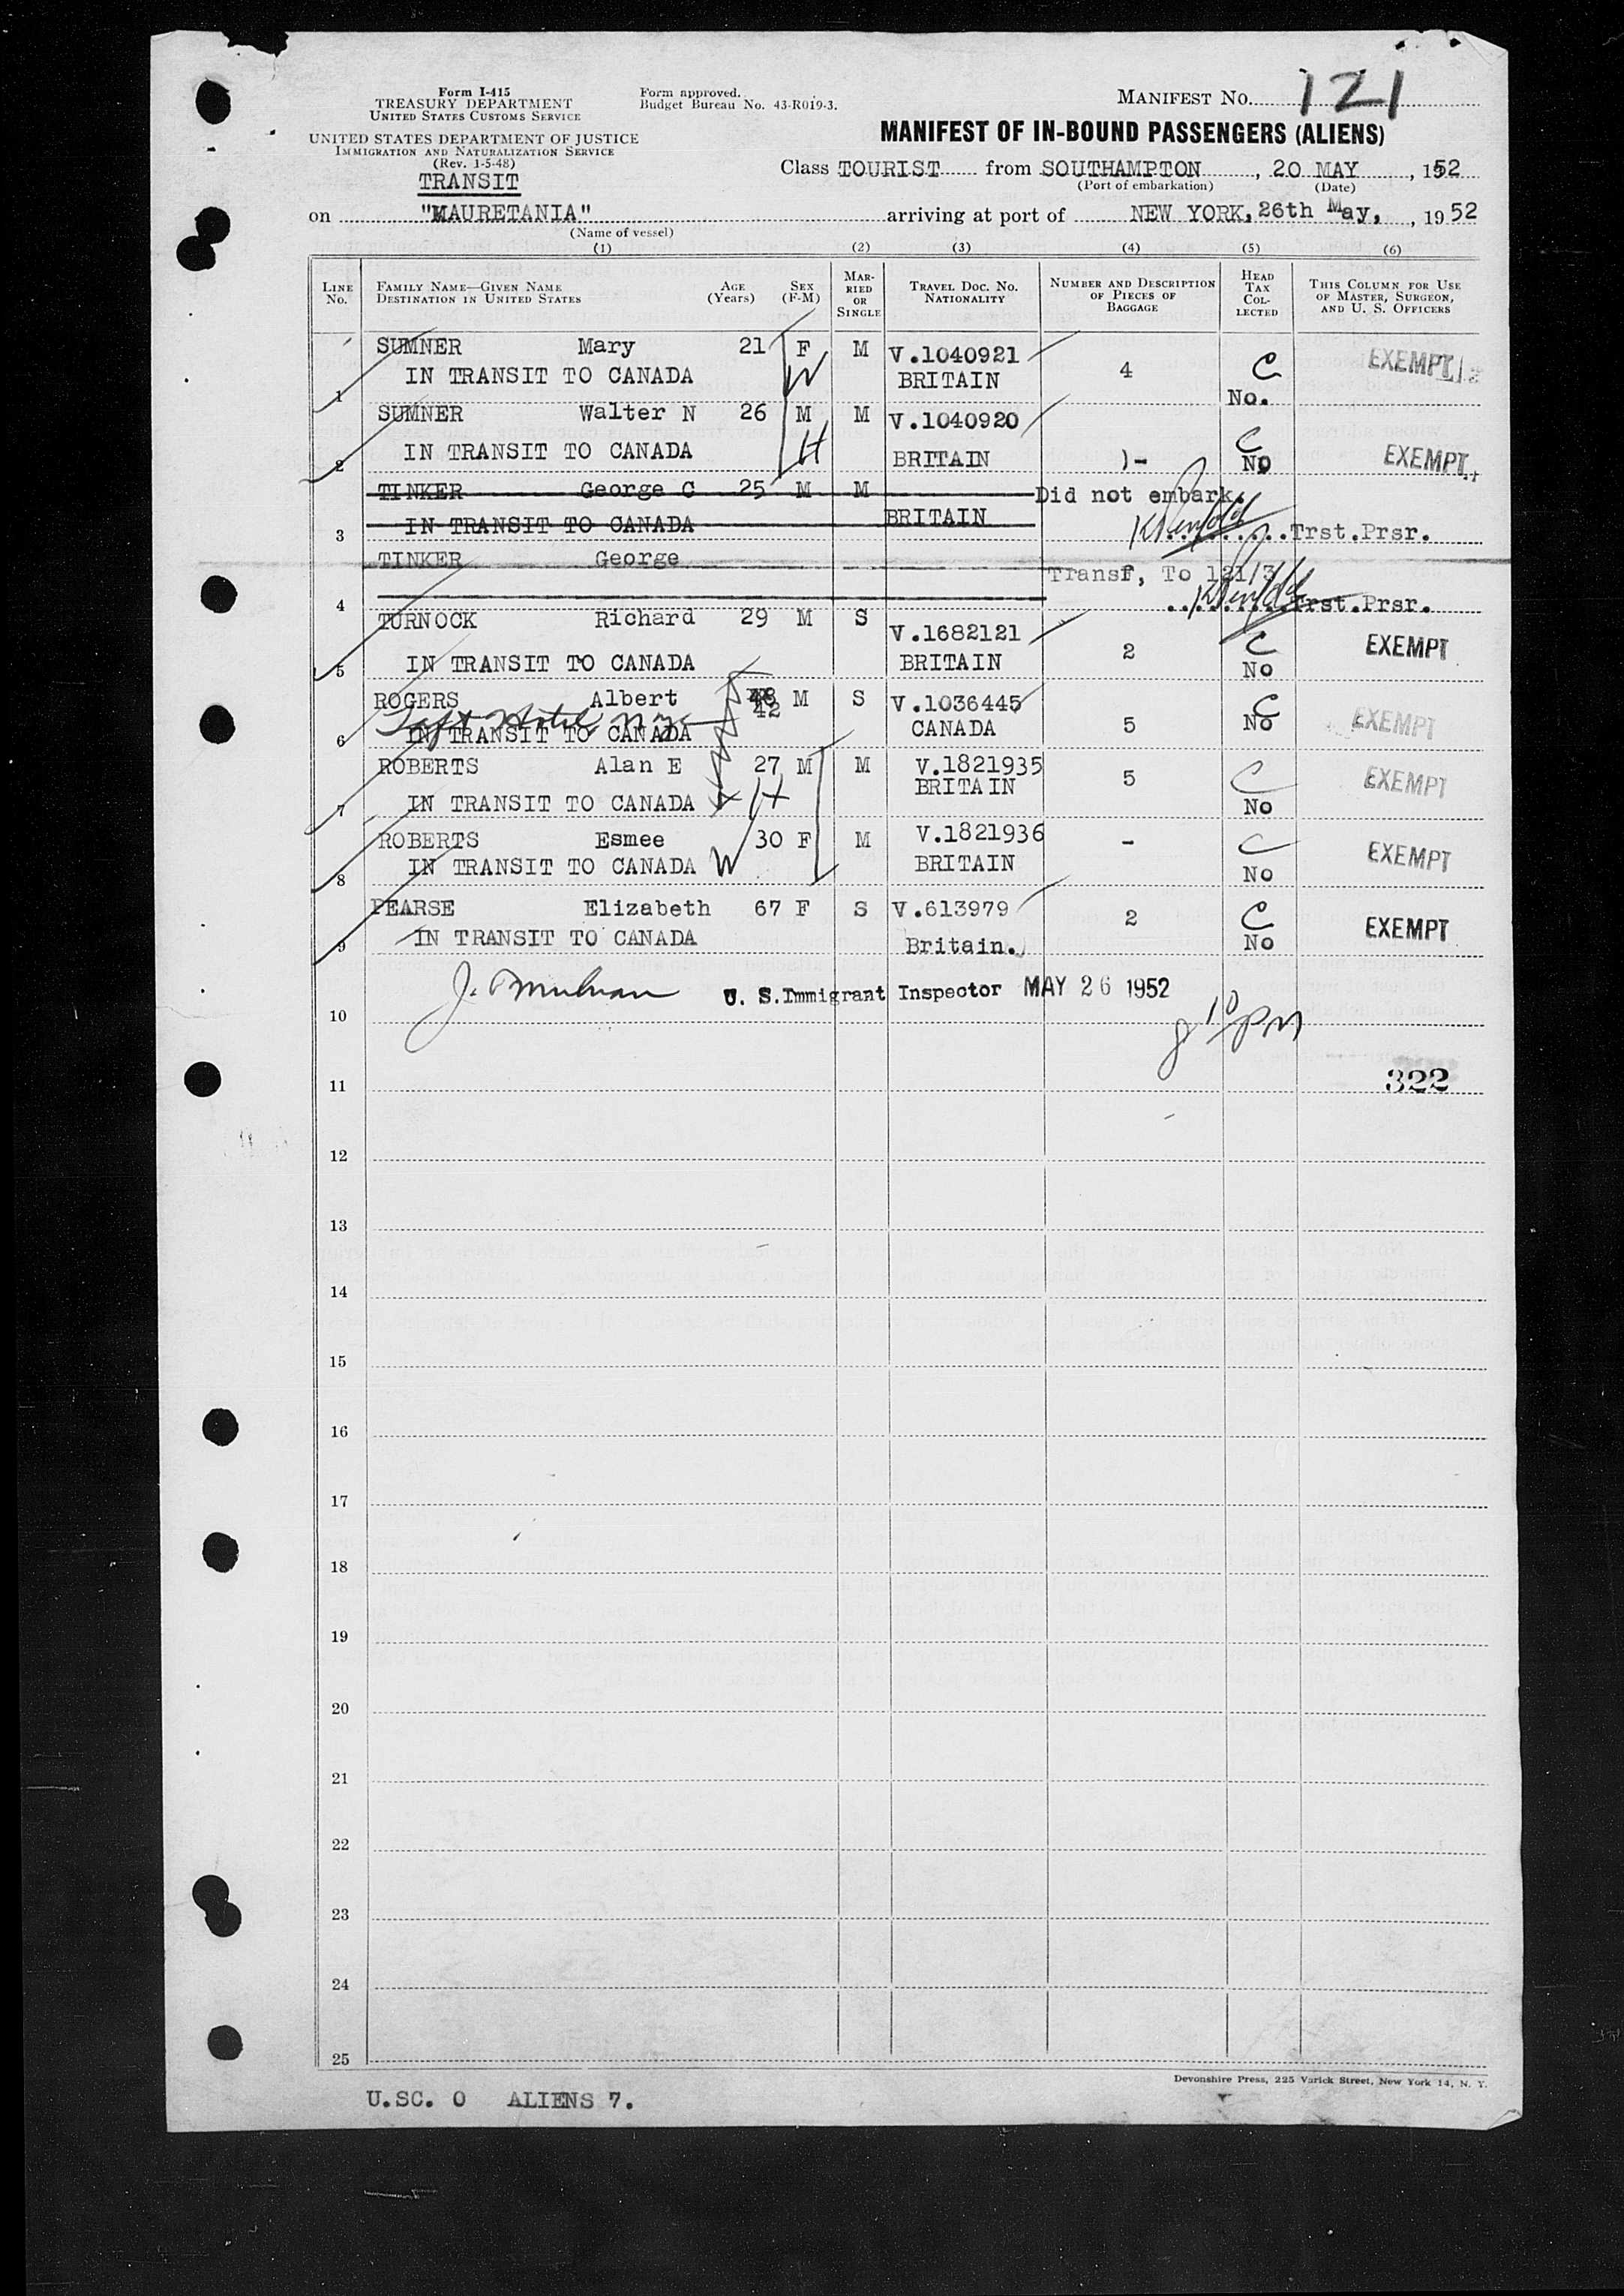 Form I-415
TREASURY DEPARTMENT
UNITED STATES CUSTOMS SERVICE
UNITED STATES DEPARTMENT OF JUSTICE
IMMIGRATION AND NATURALIZATION SERVICE
(Rev. 1-5-48)
TRANSIT
Form approved.
Budget Bureau No. 43-R019-3.
MANIFEST NO. 121
MANIFEST OF IN-BOUND PASSENGERS (ALIENS)
Class TOURIST from SOUTHAMPTON, 20 MAY, 1952
(Port of embarkation) (Date)
on "MAURETANIA" arriving at port of NEW YORK, 26th May, 1952
(Name of vessel)
(1) (2) (3) (4) (5) (6)
LINE No. FAMILY NAME—GIVEN NAME DESTINATION IN UNITED STATES AGE (Years) SEX (F-M) MARRIED OR SINGLE TRAVEL DOC. NO. NATIONALITY NUMBER AND DESCRIPTION OF PIECES OF BAGGAGE HEAD TAX COLLECTED THIS COLUMN FOR USE OF MASTER, SURGEON, AND U. S. OFFICERS
SUMNER Mary 21 F M V.1040921 4 C EXEMPT
1 IN TRANSIT TO CANADA W BRITAIN No.
SUMNER Walter N 26 M M V.1040920 C
2 IN TRANSIT TO CANADA H BRITAIN )- No EXEMPT
TINKER George C 25 M M Did not embark.
3 IN TRANSIT TO CANADA BRITAIN Trst.Prsr.
TINKER George Transf, To 121/3
4 Trst.Prsr.
TURNOCK Richard 29 M S V.1682121 2 C EXEMPT
5 IN TRANSIT TO CANADA BRITAIN No
ROGERS Albert 42 M S V.1036445 C
Taft Hotel N.Y.
6 IN TRANSIT TO CANADA CANADA 5 No EXEMPT
ROBERTS Alan E 27 M M V.1821935 5 C EXEMPT
7 IN TRANSIT TO CANADA H BRITAIN No
ROBERTS Esmee 30 F M V.1821936 - C EXEMPT
8 IN TRANSIT TO CANADA W BRITAIN No
PEARSE Elizabeth 67 F S V.613979 2 C EXEMPT
9 IN TRANSIT TO CANADA Britain. No
U. S. Immigrant Inspector MAY 26 1952
10
8 10 PM
11 322
12
13
14
15
16
17
18
19
20
21
22
23
24
25
Devonshire Press, 225 Varick Street, New York 14, N. Y.
U.SC. 0 ALIENS 7.